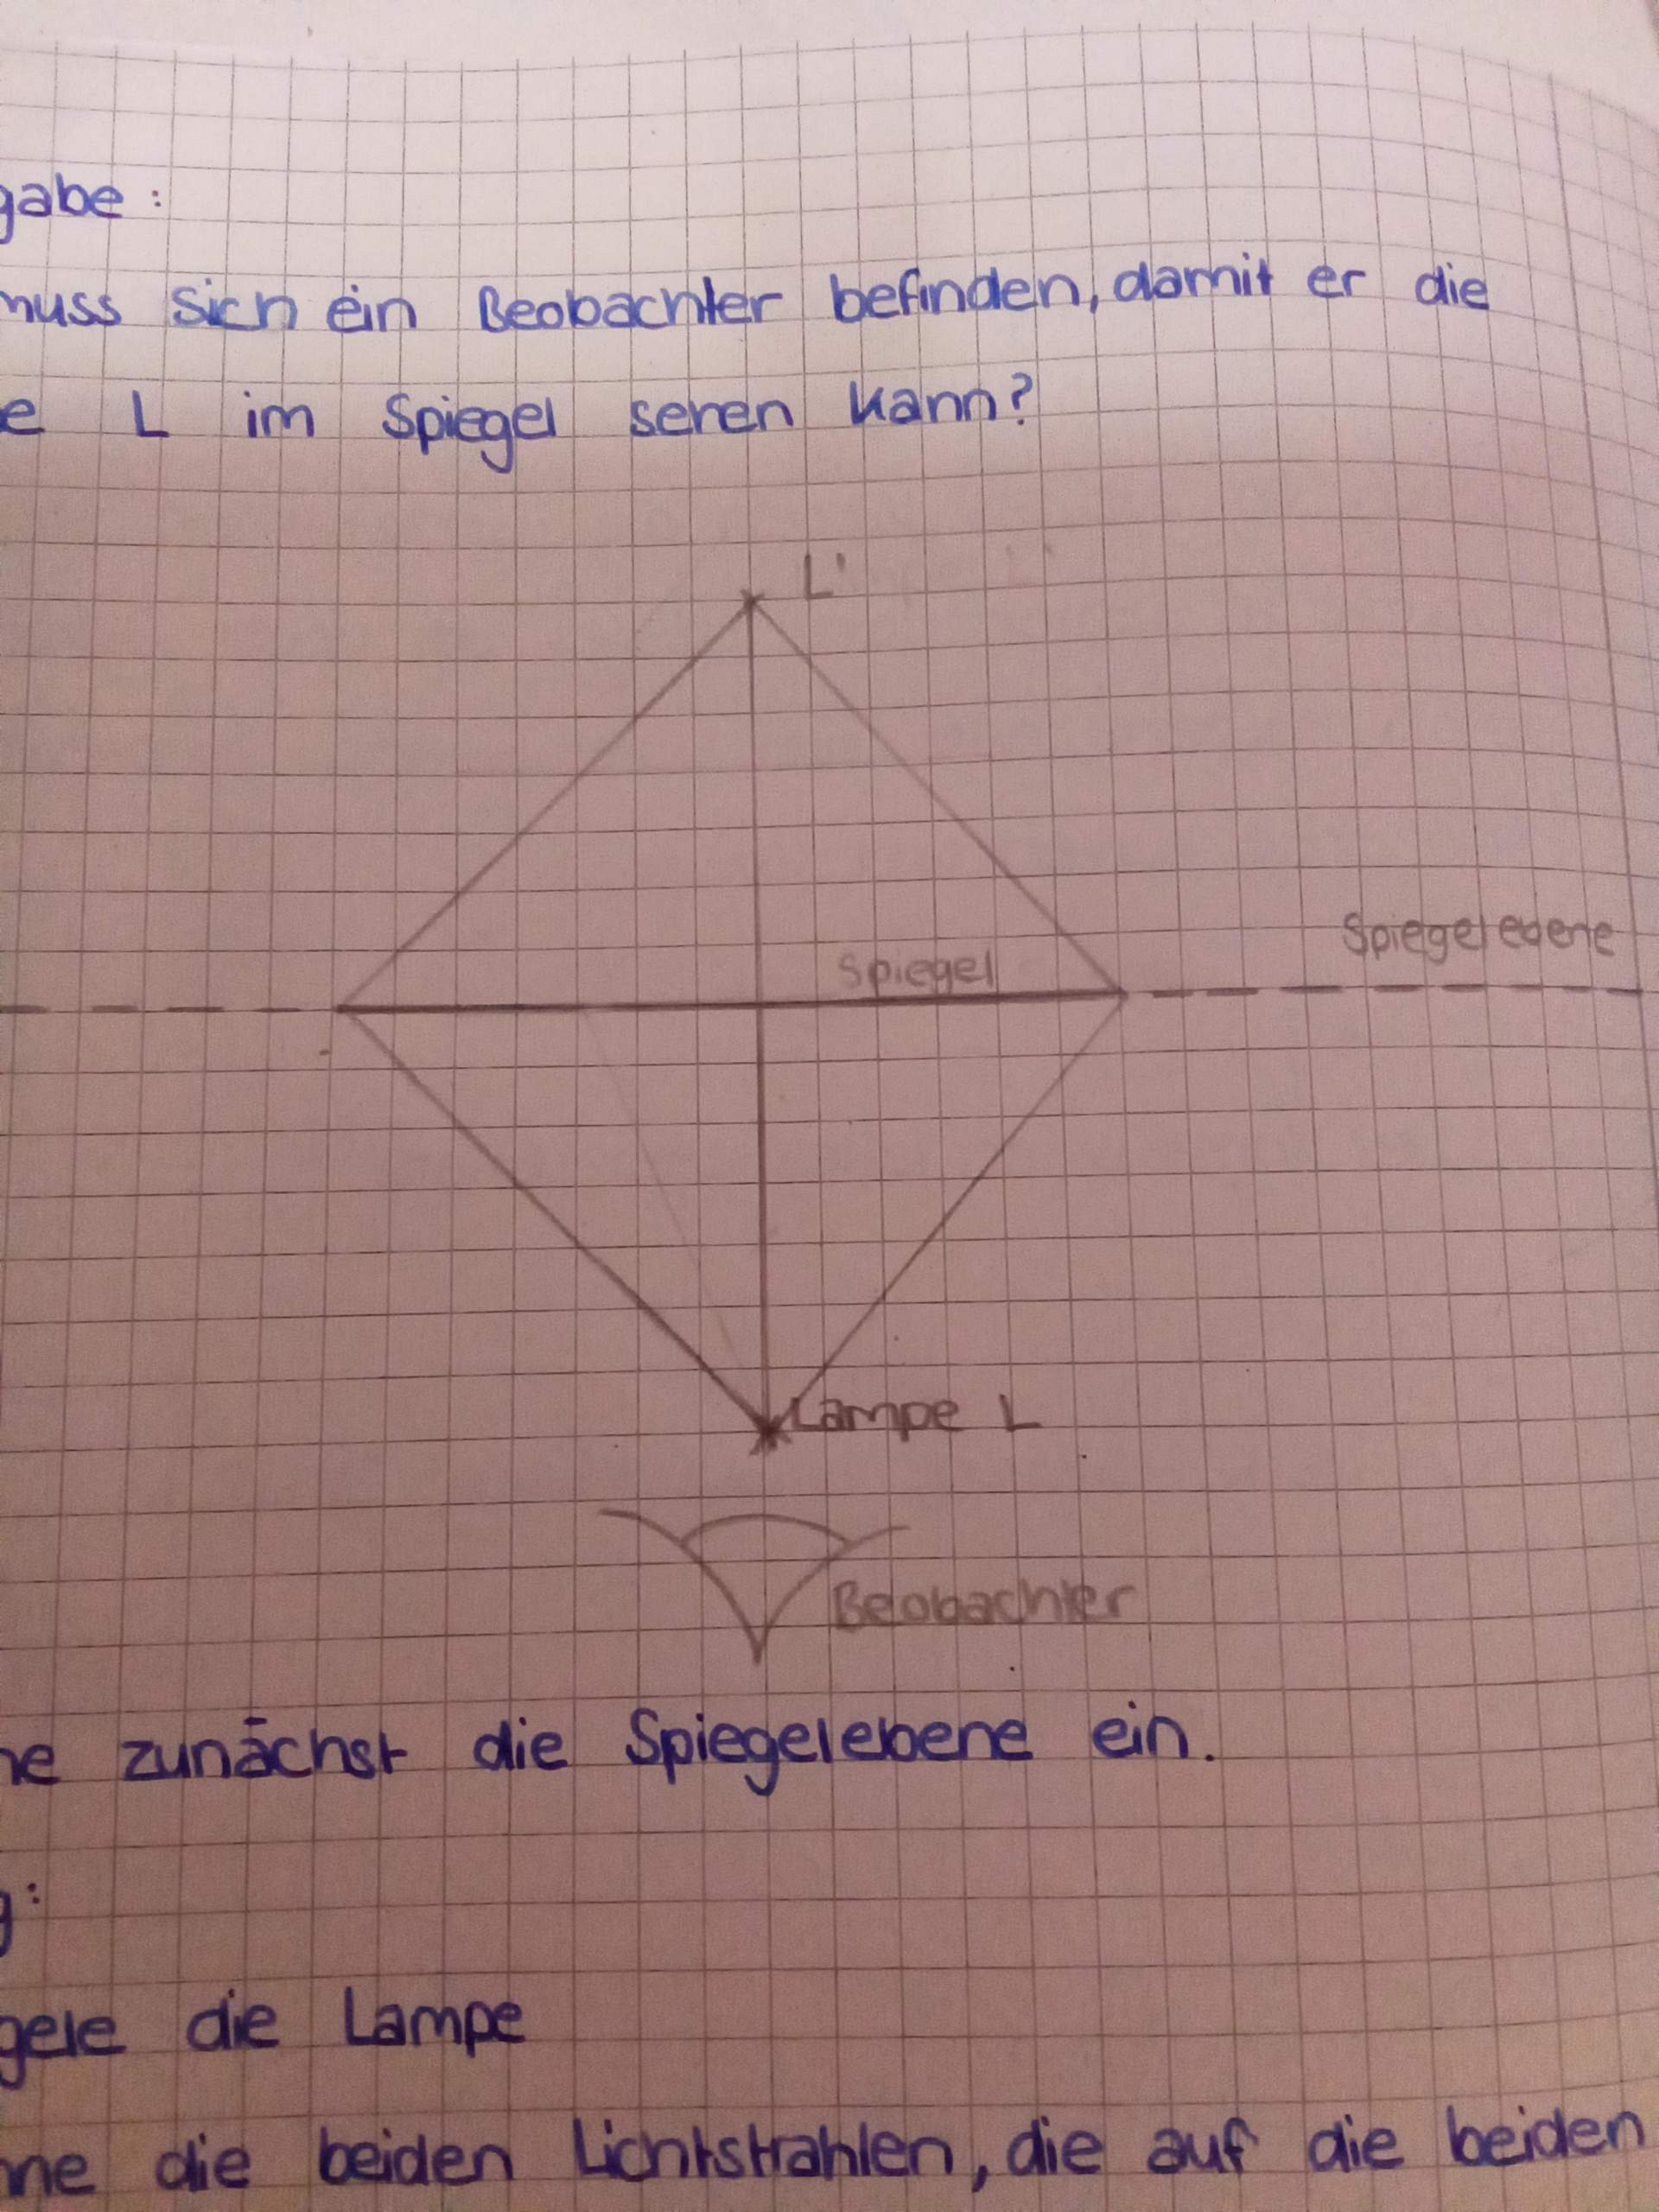 gabe:
muss sich ein Beobachter befinden, damit er die
e L im Spiegel sehen kann?
L'
Spiegelebene
Spiegel
Lampe L
Beobachter
ne zunächst die Spiegelebene ein.
g:
gele die Lampe
ne die beiden Lichtstrahlen, die auf die beiden